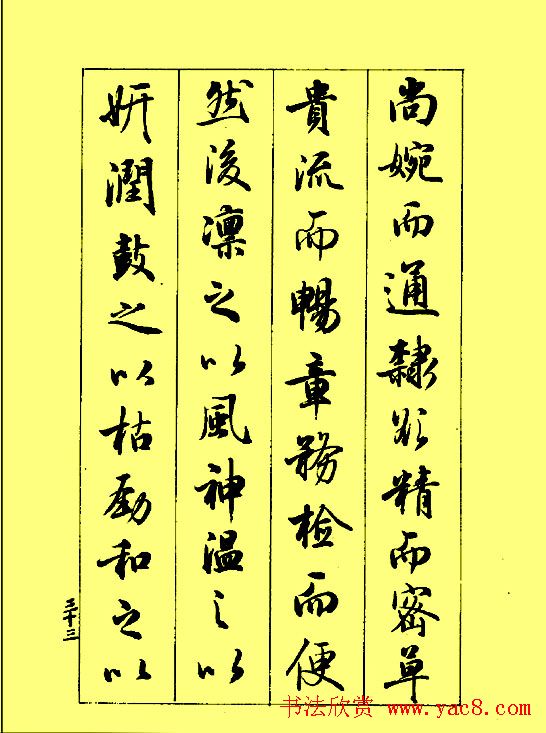 尚婉而通隸欲精而密草
貴流而暢章務檢而便
然後凛之以風神温之以
妍潤鼓之以枯勁和之以
三十三
书法欣赏 www.yac8.com